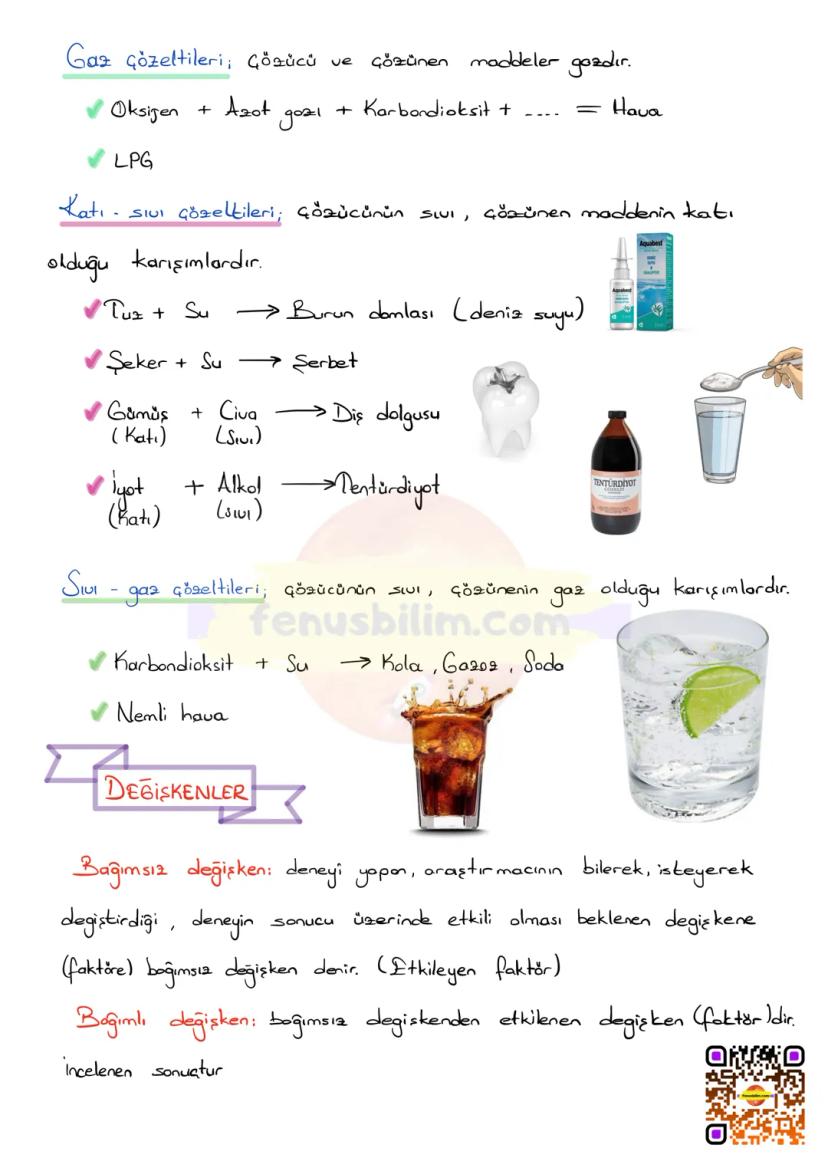 Gaz çözeltileri; çözücü ve çözünen maddeler gazdır.
✓ Oksijen + Azot gazı + Karbondioksit + .... = Hava
✓ LPG
Katı - sıvı çözeltileri; çözücünün sıvı, çözünen maddenin katı
olduğu karışımlardır.
Aquabest
Aquabest
✓ Tuz + Su → Burun damlası (deniz suyu)
✓ Şeker + Su → Şerbet
✓ Gümüş + Civa → Diş dolgusu
(Katı) (Sıvı)
✓ İyot + Alkol → Tentürdiyot
(Katı) (sıvı)
TENTÜRDİYOT
Sıvı - gaz çözeltileri; çözücünün sıvı, çözünenin gaz olduğu karışımlardır.
fenusbilim.com
✓ Karbondioksit + Su → Kola, Gazoz, Soda
✓ Nemli hava
DEĞİŞKENLER
Bağımsız değişken: deneyi yapan, araştırmacının bilerek, isteyerek
degiştirdiği, deneyin sonucu üzerinde etkili olması beklenen degişkene
(faktöre) bağımsız değişken denir. (Etkileyen faktör)
Bağımlı değişken: bağımsız degiskenden etkilenen degişken (faktör)dir.
İncelenen sonuçtur
fenusbilim.com